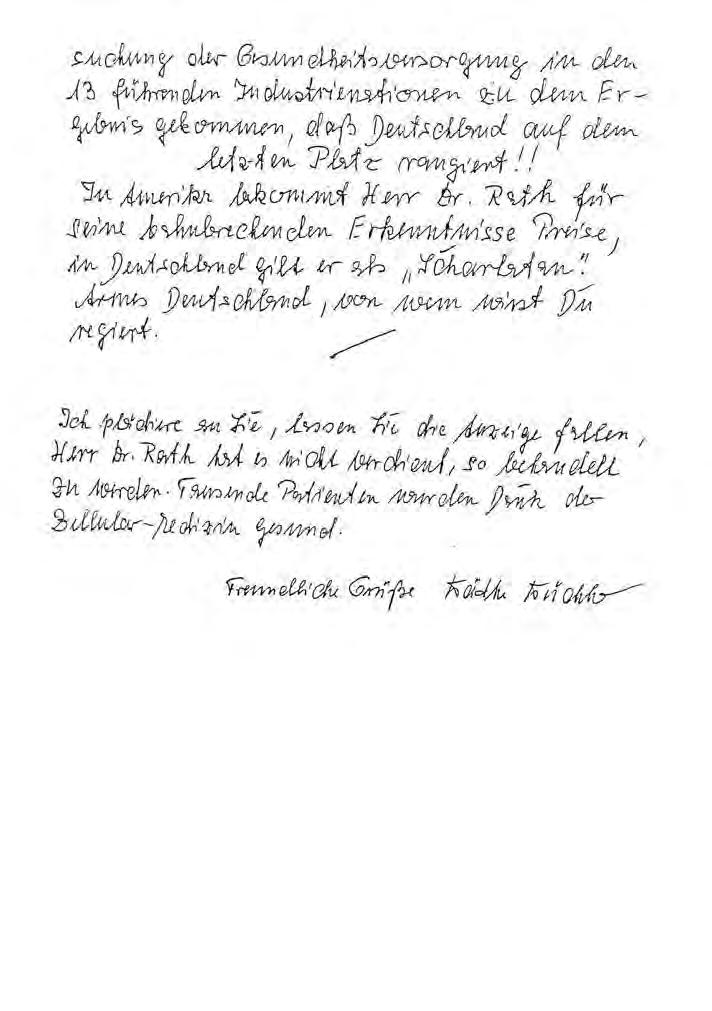 suchung der Gesundheitsversorgung in den
13 führenden Industrienationen zu dem Er-
gebnis gekommen, daß Deutschland auf dem
letzten Platz rangiert!!
In Amerika bekommt Herr Dr. Rath für
seine bahnbrechenden Erkenntnisse Preise,
in Deutschland gilt er als „Scharlatan".
Armes Deutschland, von wem wirst Du
regiert.
Ich plädiere an Sie, lassen Sie die Anzeige fallen,
Herr Dr. Rath hat es nicht verdient, so behandelt
zu werden. Tausende Patienten wurden Dank der
Zellular-Medizin gesund.
Freundliche Grüße Käthe